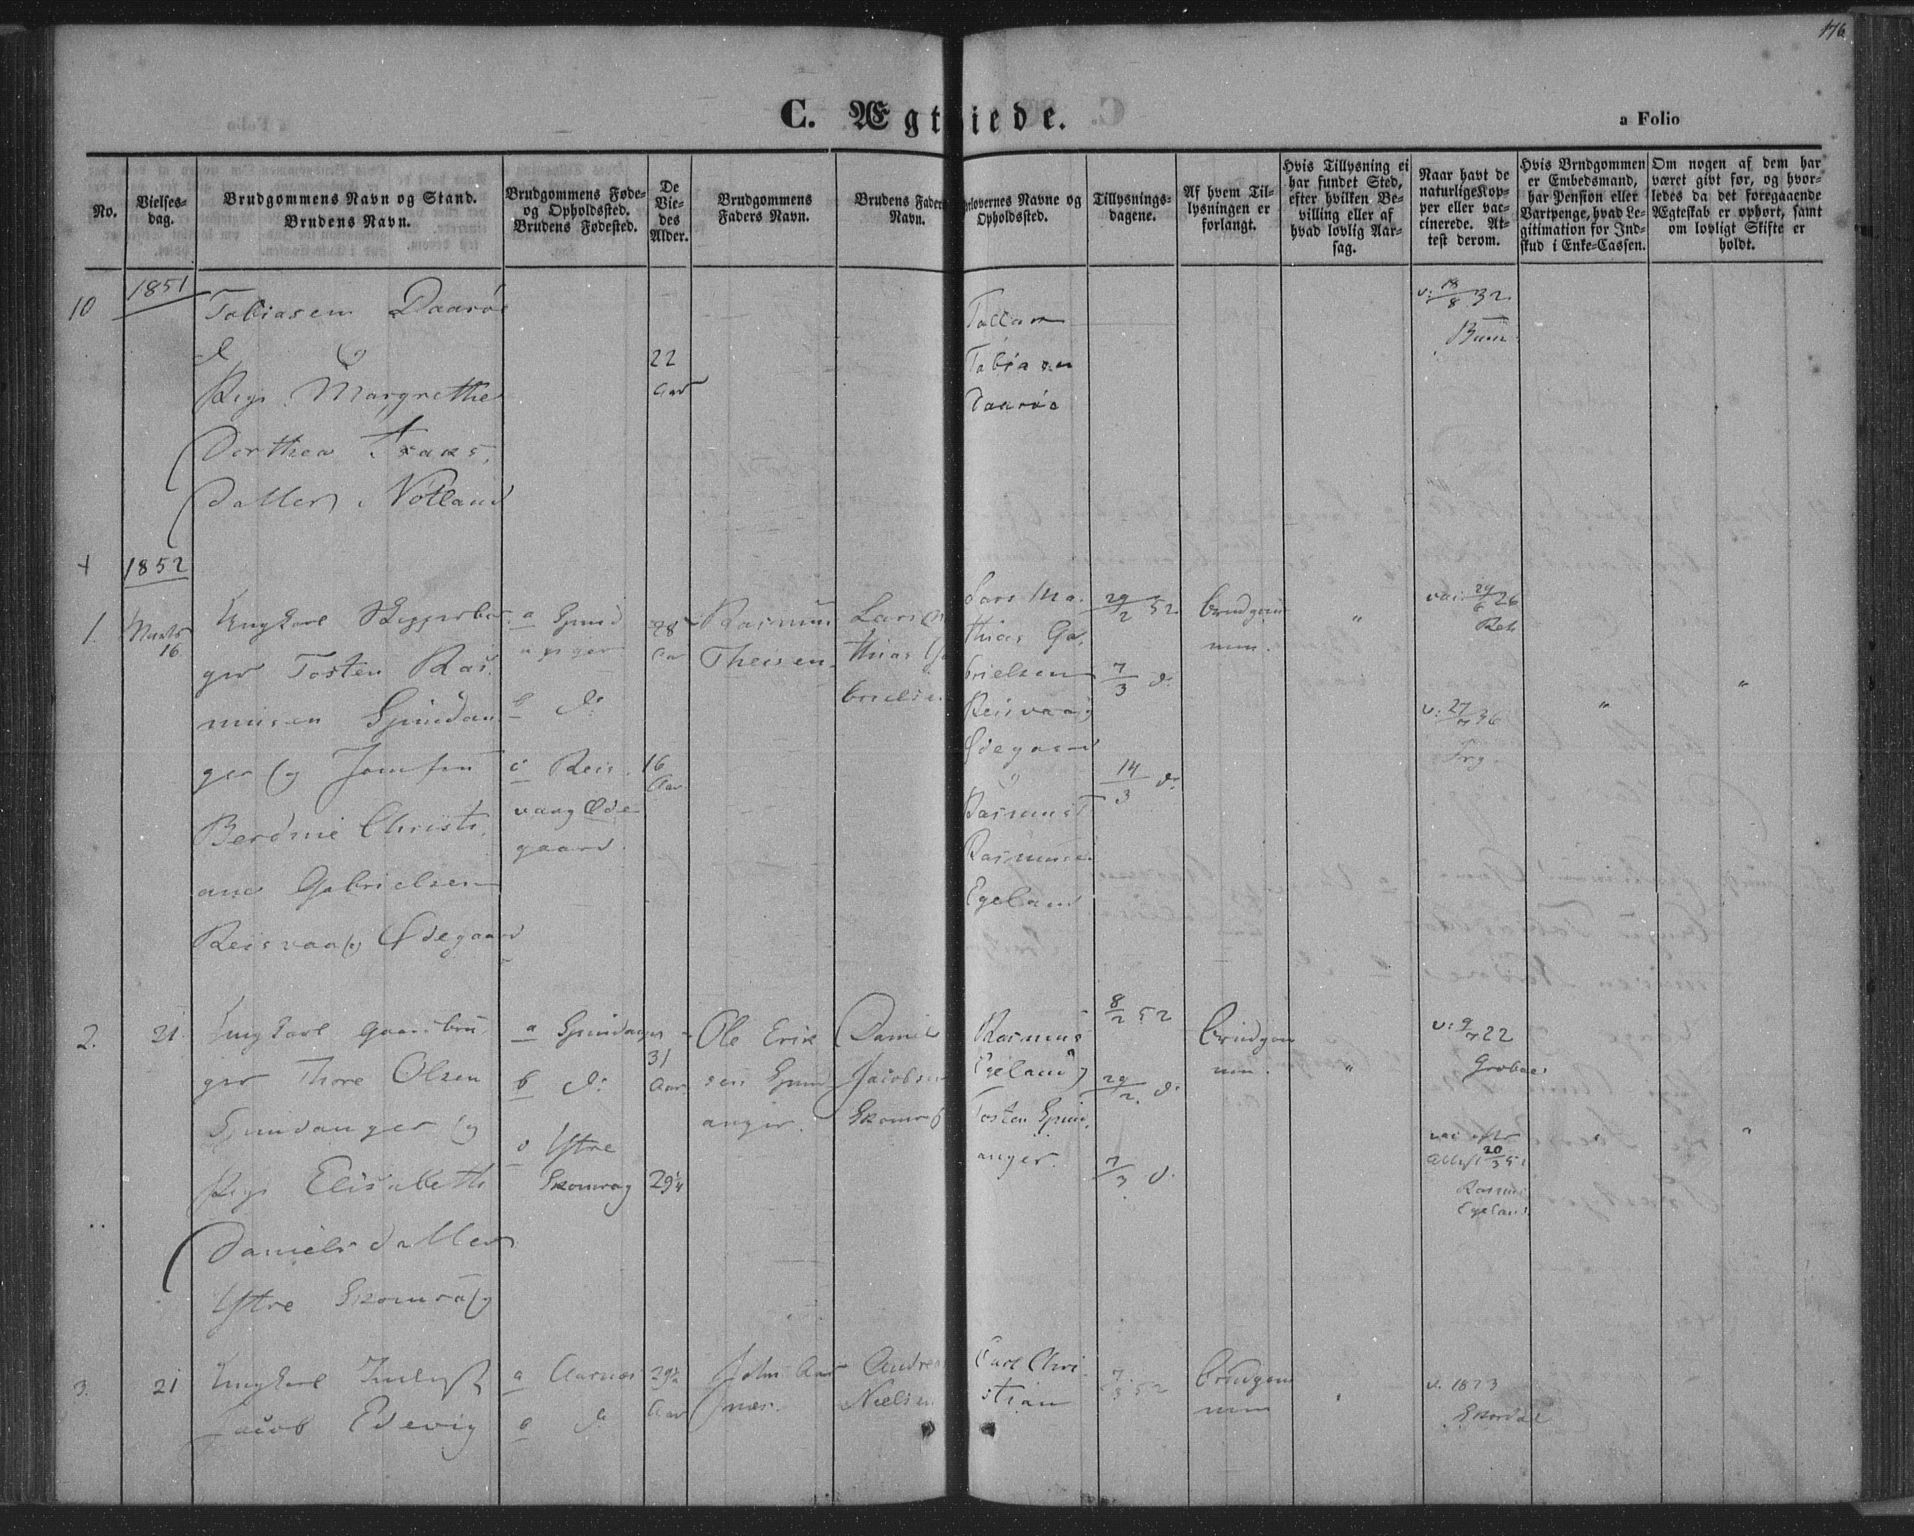 176
C. Ægteviede.
a Folio
No.
Vielses-
dag.
Brudgommens Navn og Stand.
Brudens Navn.
Brudgommens Føde-
og Opholdsted.
Brudens Fødested.
De
Vie-
des
Alder.
Brudgommens
Faders Navn.
Brudens Faders
Navn.
Forlovernes Navne og
Opholdsted.
Tillysnings-
dagene.
Af hvem Til-
lysningen er
forlangt.
Hvis Tillysning ei
har fundet Sted,
efter hvilken Be-
villing eller af
hvad lovlig Aar-
sag.
Naar havt de
naturlige Kop-
per eller vac-
cinerede. At-
test derom.
Hvis Brudgommen
er Embedsmand,
har Pension eller
Vartpenge, hvad Le-
gitimation for Ind-
skud i Enke-Cassen.
Om nogen af dem har
været givt før, og hvor-
ledes da det foregaaende
Ægteskab er ophørt, samt
om lovligt Skifte er
holdt.
10
1851
Tobiasen Daarøe
og
Pige Margrethe
Dorthea
datter
22
Aar
Tallax
Tobiasen
Daarøe
v: 18/8 32
1852
1.
Marts
16
Ungkarl Skipperbor-
ger Tosten Ras-
musen Spindan
ger og Jomfru
Berdine Christi
ane Gabrielsen
Reisvaag Ødegaard
a Spind
anger
b do
c Reis
vaag Øde
gaard.
28
Aar
16
Aar
Rasmus
Theisen
Lars Ma
thias Ga
brielsen
Lars Ma-
thias Ga-
brielsen
Reisvaag
Ødegaard
og
Rasmus
Rasmusen
Egeland
29/2 52
7/3 do
14/3 do
Brudgom
men.
"
vac: 29/6 26
v: 27/7 36
"
"
2.
21
Ungkarl Gaardbru
ger Thore Olsen
Spindanger og
Pige Elisabeth
Danielsdatter
Ystre Skomrag
a Spindanger
b do
c Ystre
Skomrag
31
Aar
29 1/4
Ole Erik
sen Spind
anger.
Daniel
Jacobsen
Skomrag
Rasmus
Egeland
Tosten Spind
anger.
8/2 52
29/2 do
7/3 do
Brudgom
men.
"
v: 9/7 22
vac. efter
Attest 20/3 51
Rasmus
Egeland
"
3.
21
Ungkarl
Jacob Edevig
a Aarnes
b do
29 1/2
Aar
John Aar
nes.
Andrea
Nielsen
Carl Chri
stian
7/3 52
Brudgom
men
v. 1823